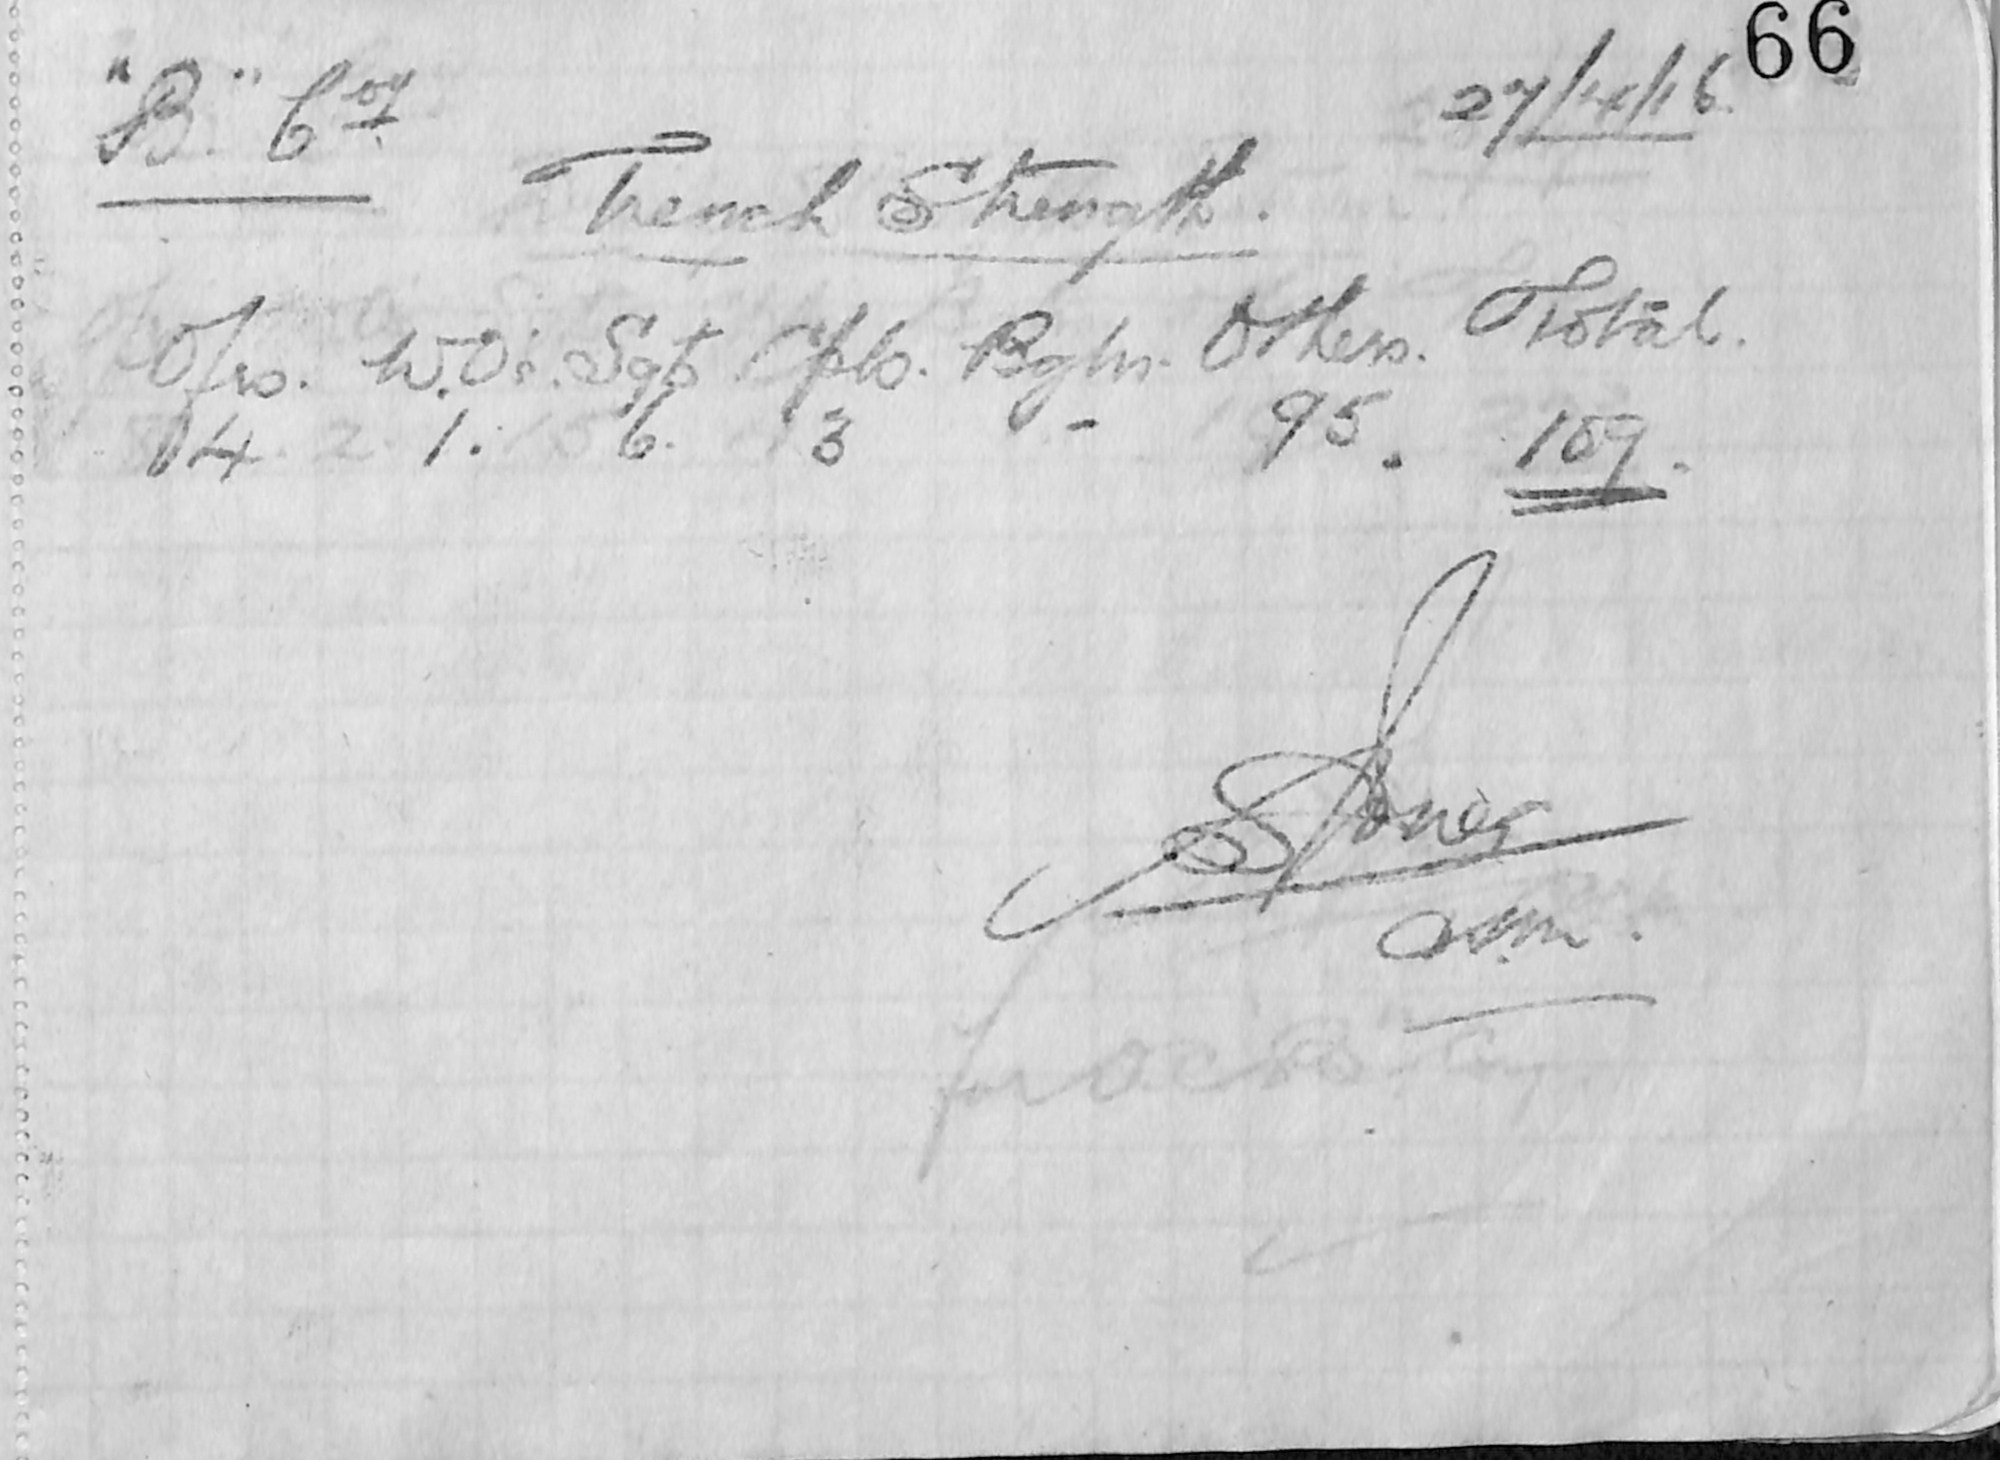 66
"B" Coy. 27/4/16.
Trench Strength.
Ofrs. W.O's. Sgts Cpls. Bglrs. Others. Total.
4 1. 6. 3 - 95. 109.
S Jones
for OC "B" Coy